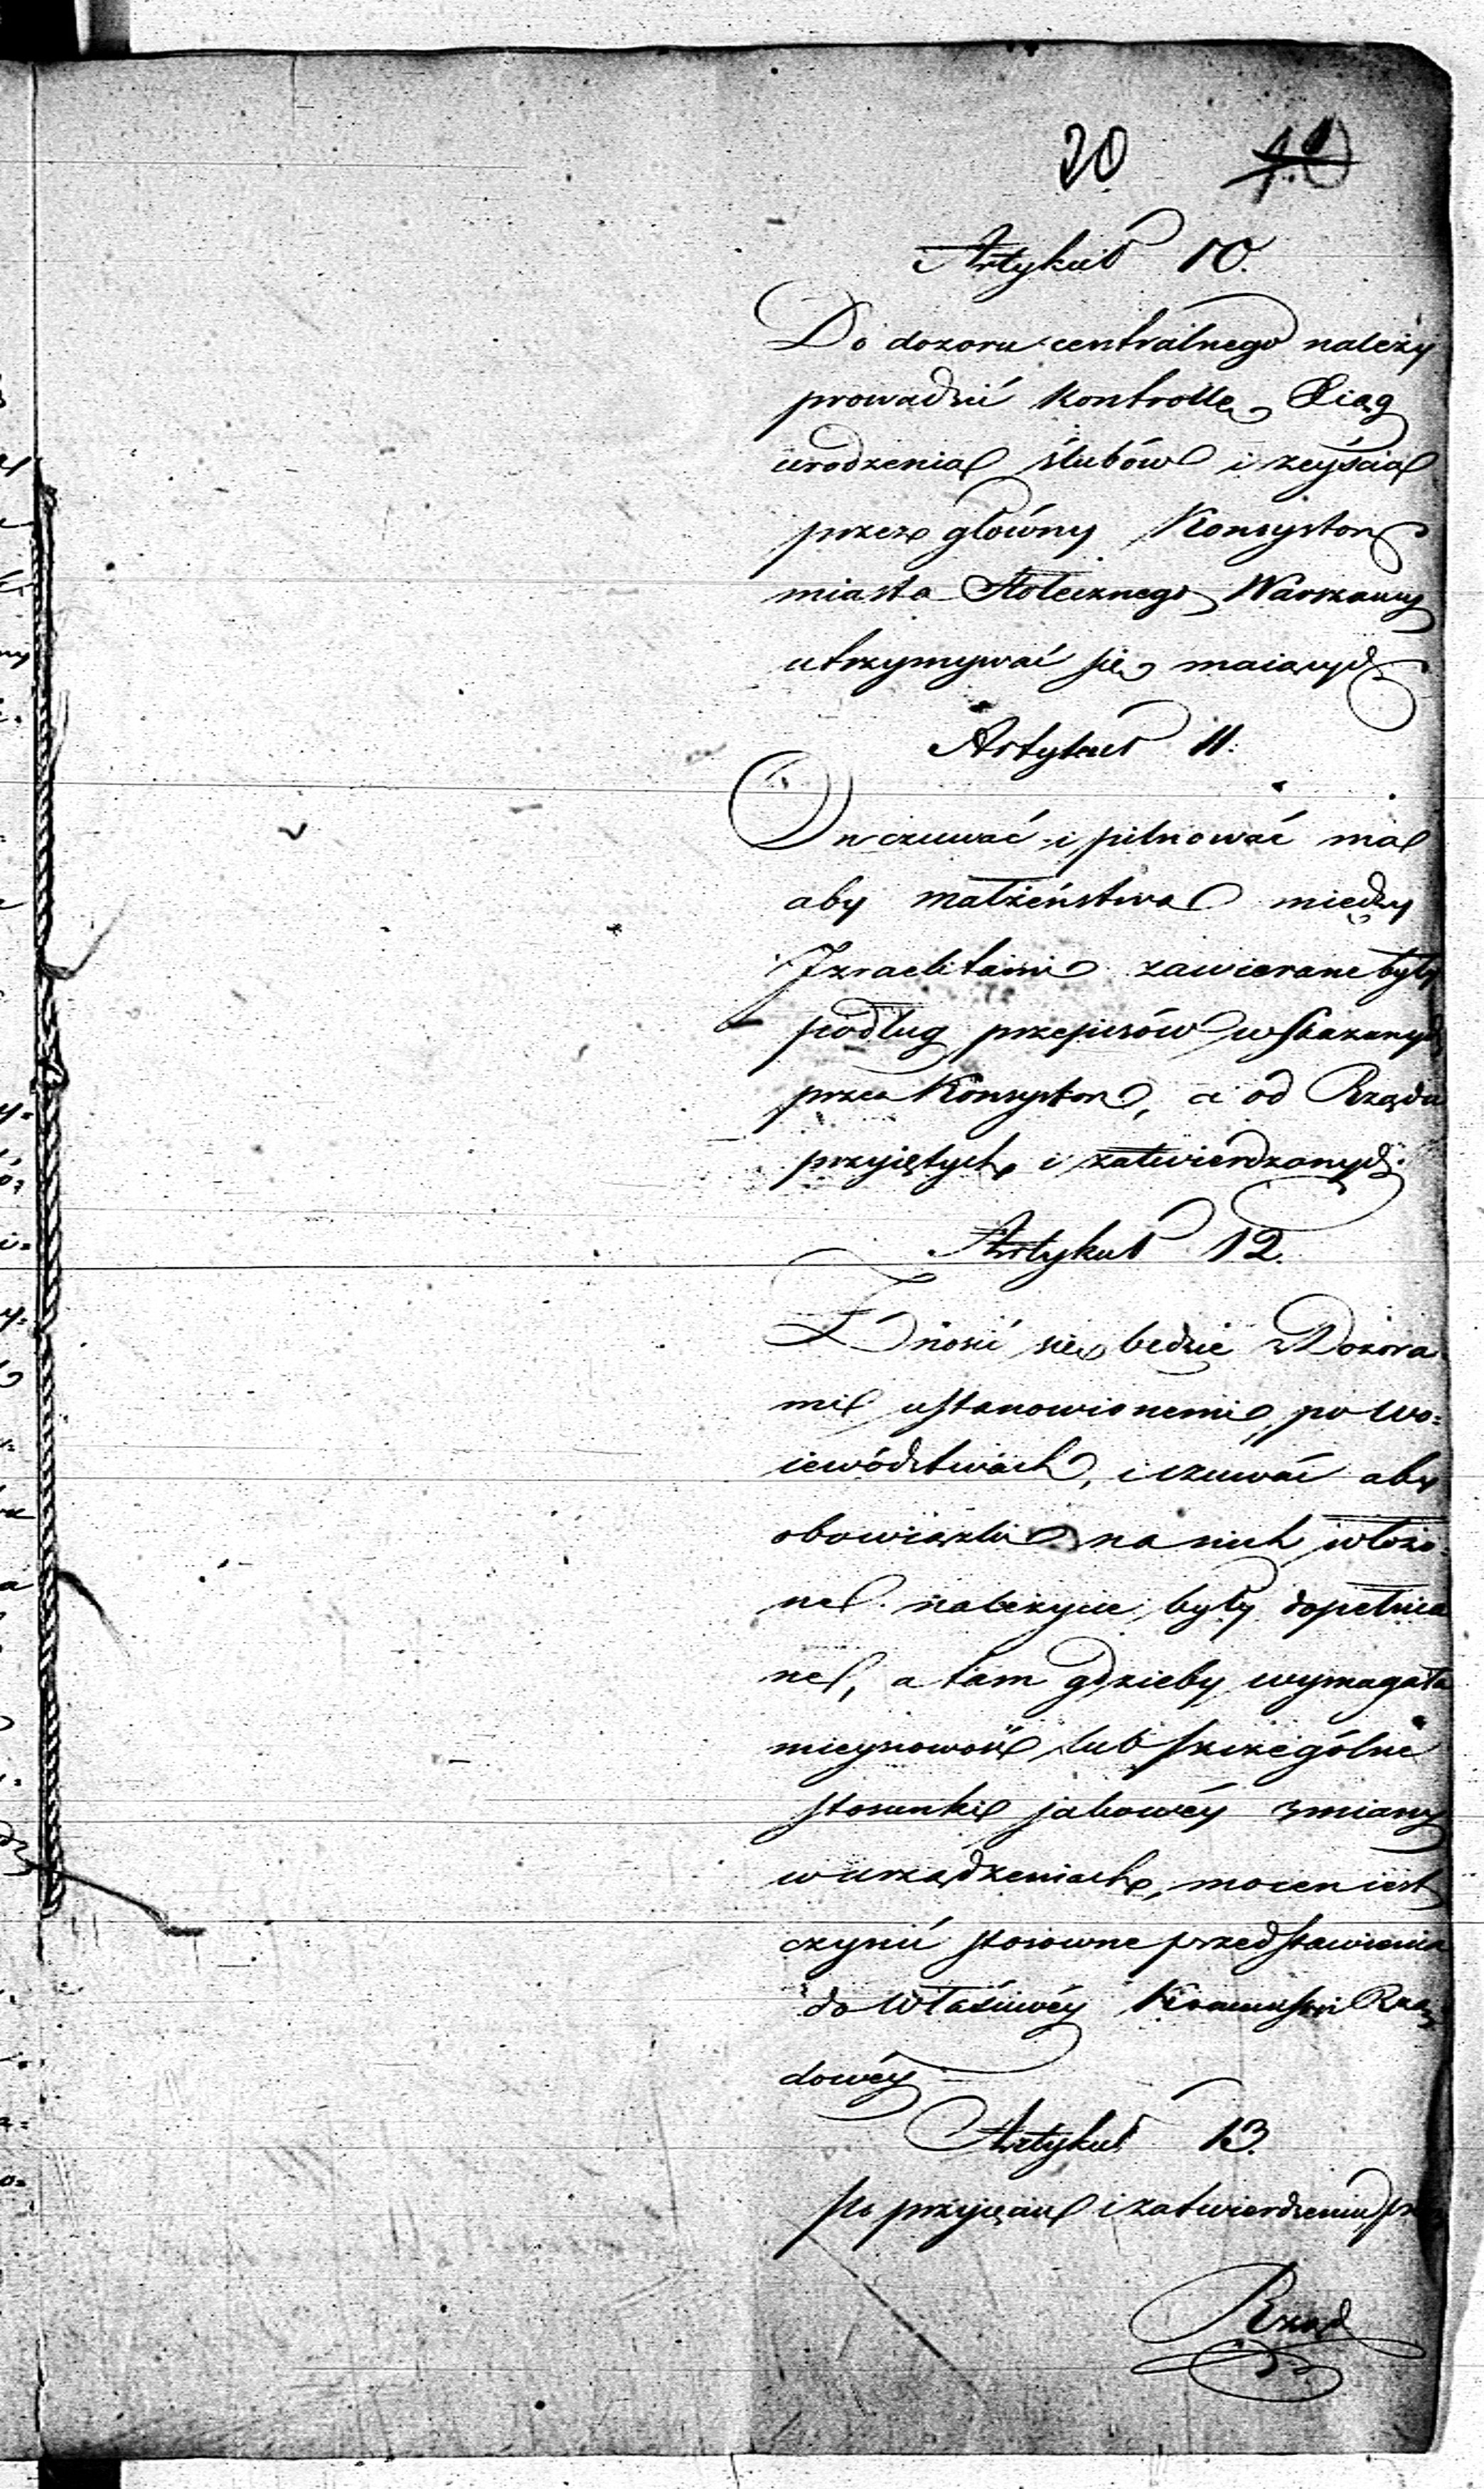 20
Artykuł 10.
Do dozoru centralnego należy
prowadzić kontrollę Xiąg
urodzenia ślubów i zeyścia
przez główny Konsystorz
miasta Stołecznego Warszawy
utrzymywać się maiących
Artykuł 11.
On czuwać i pilnować ma
aby małżeństwa między
Izraelitami zawierane były
podług przepisów wskazanych
przez Konsystorz, a od Rządu
przyiętych i zatwierdzonych.
Artykuł 12.
Znosić się będzie z Dozora-
mi ustanowionemi po Wo=
iewództwach, i czuwać aby
obowiązki na nich włożo=
ne należycie były dopełnia
ne, a tam gdzieby wymagała
mieyscowość lub szczególne
stosunki jakowéy zmiany
w urządzeniach, mocen iest
czynić stosowne przedstawienia
do właściwéy Kommissyi Rzą
dowéy
Artykuł 13.
Po przyięciu i zatwierdzeniu przez
Rząd